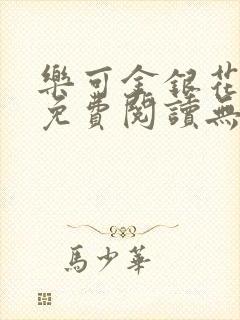 樂可金銀花
免費閱讀無
馬少華